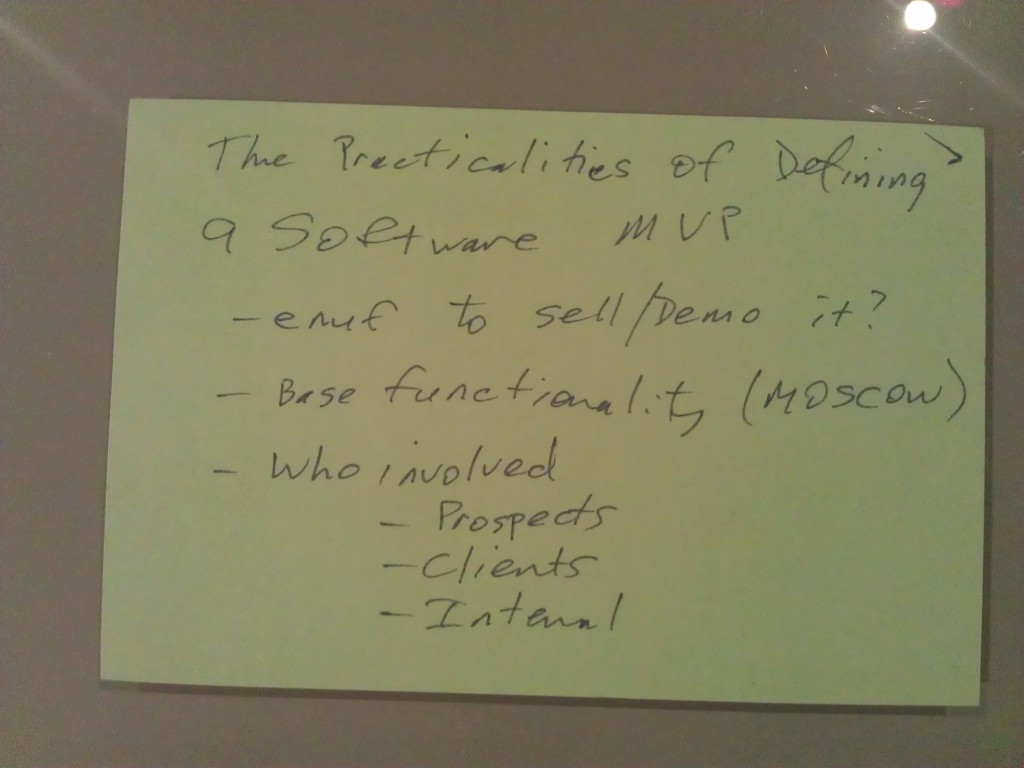 The Practicalities of Defining
a Software MVP
- enuf to sell/Demo it?
- Base functionality (MOSCOW)
- Who involved
- Prospects
- Clients
- Internal